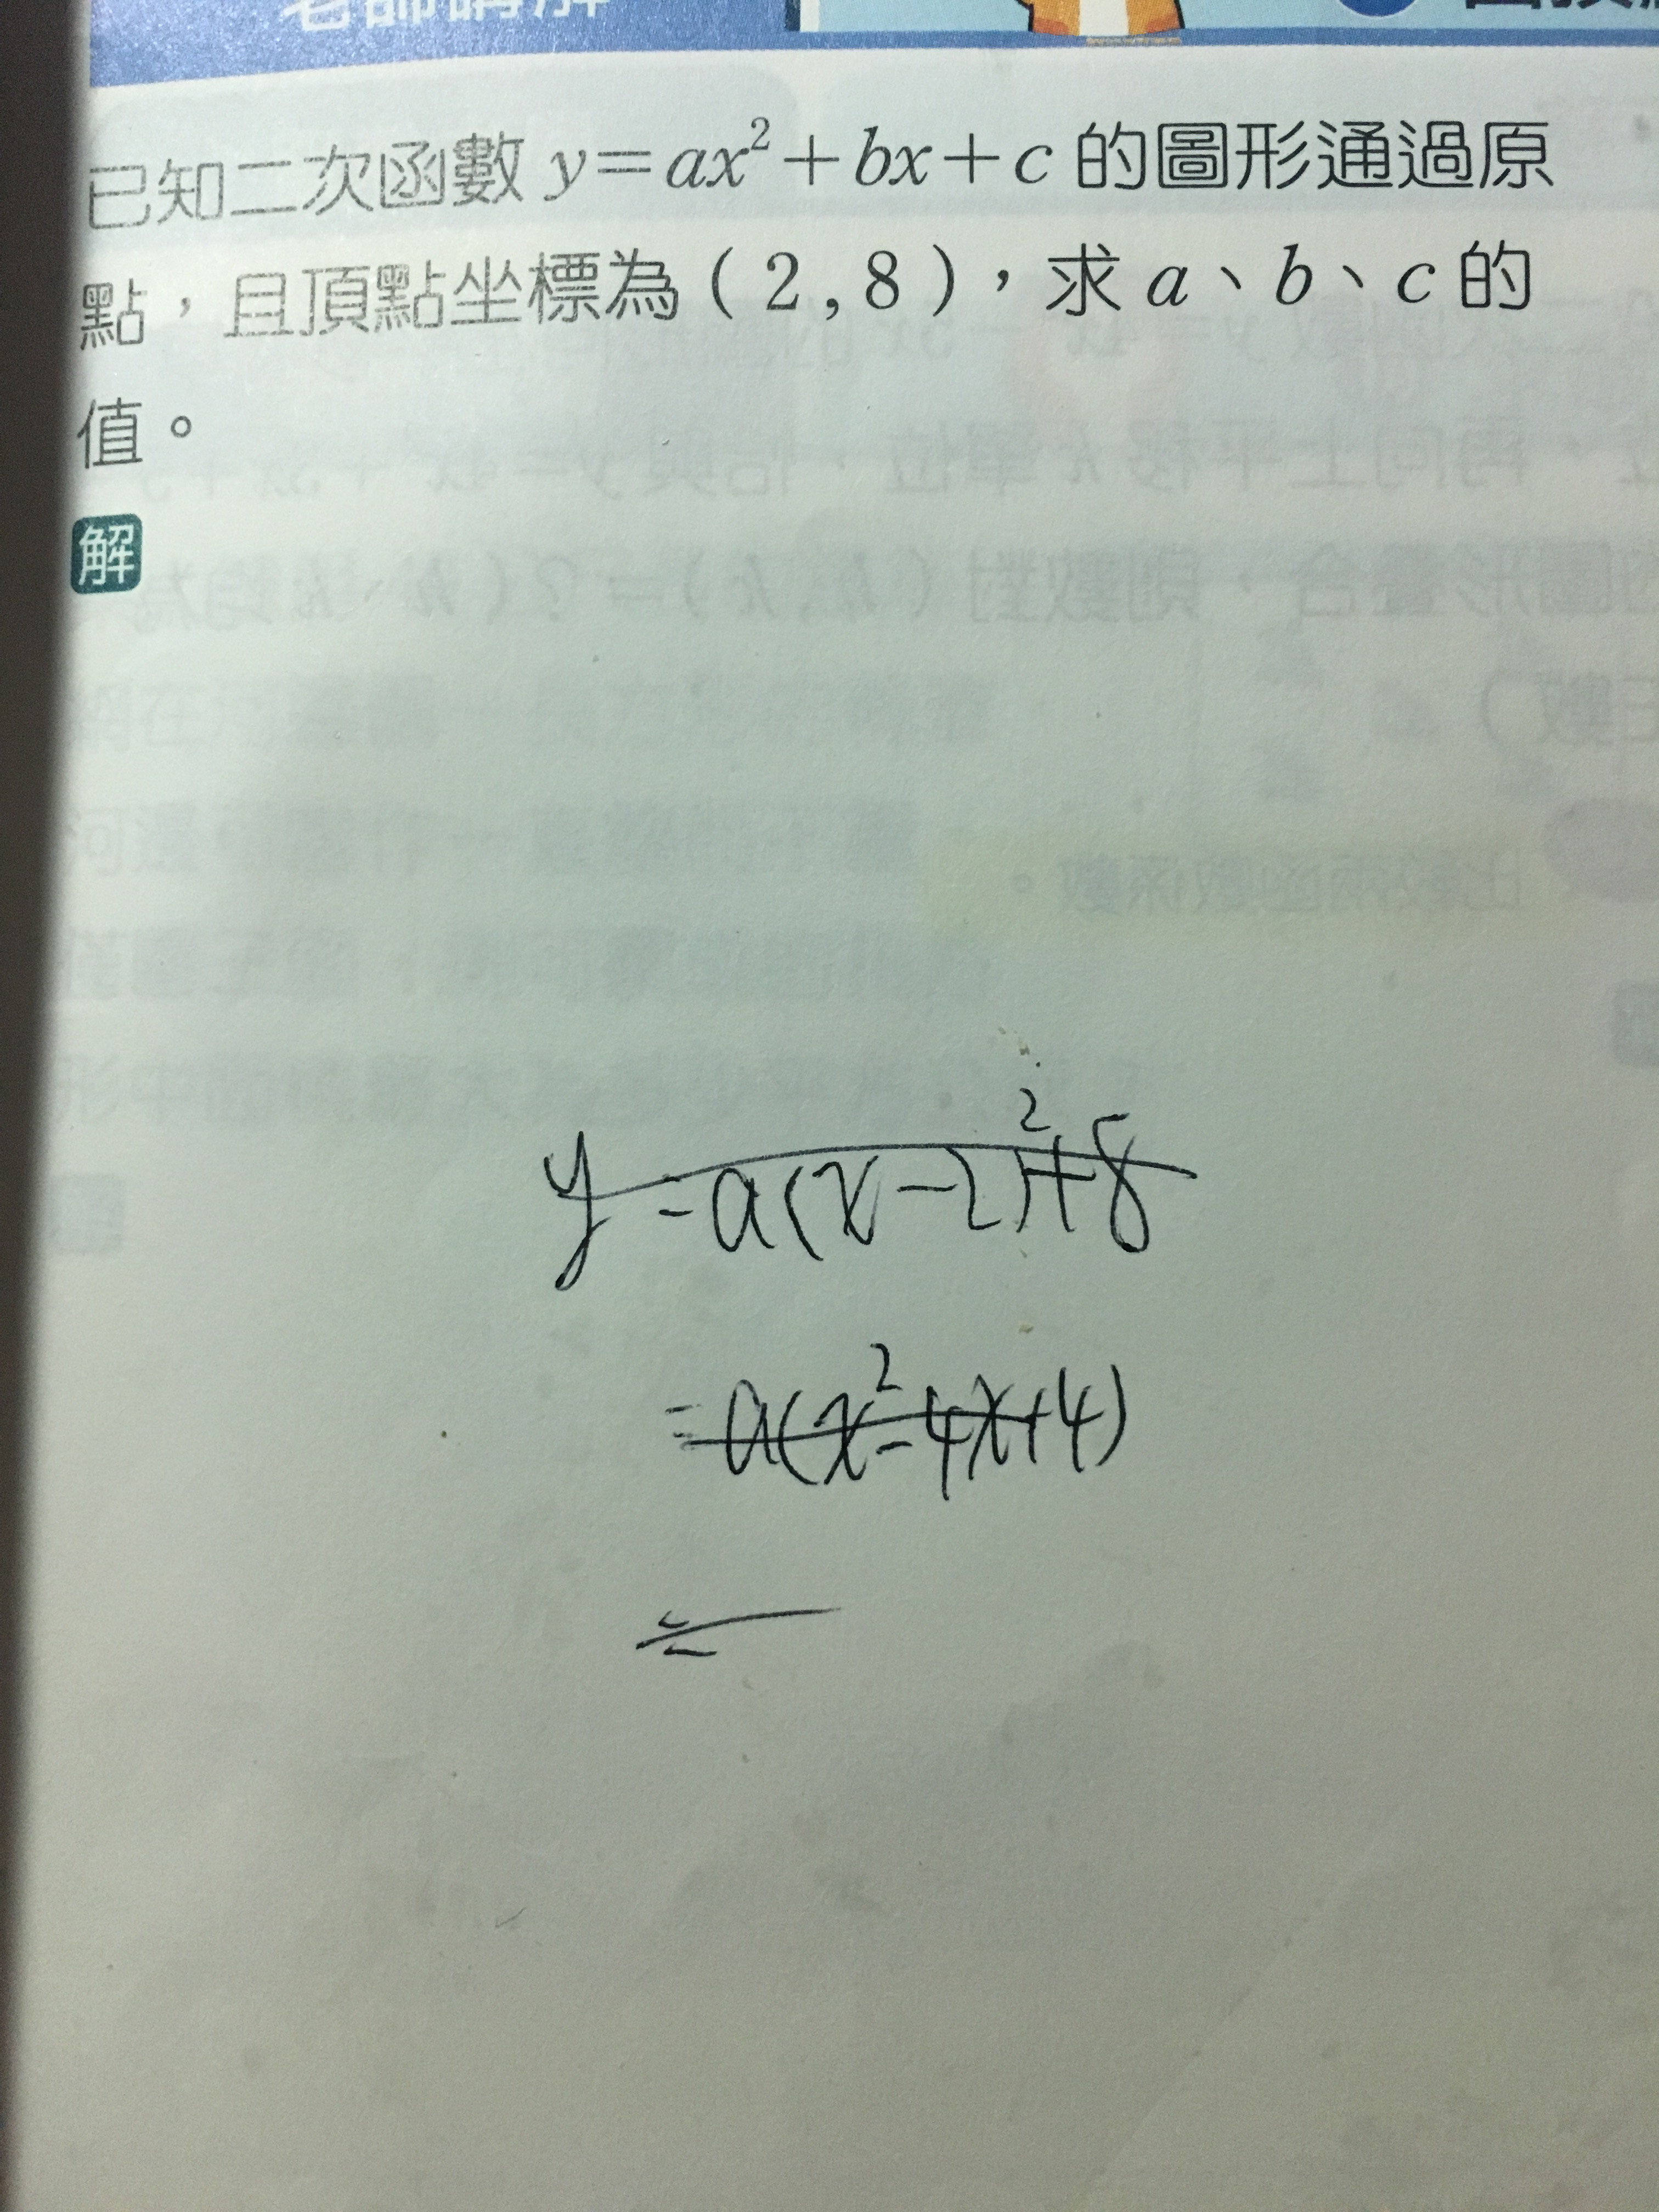 老師講解
已知二次函數 y=ax²+bx+c 的圖形通過原
點，且頂點坐標為（2,8），求 a、b、c 的
值。
解
y=a(x-2)²+8
=a(x²-4x+4)
=